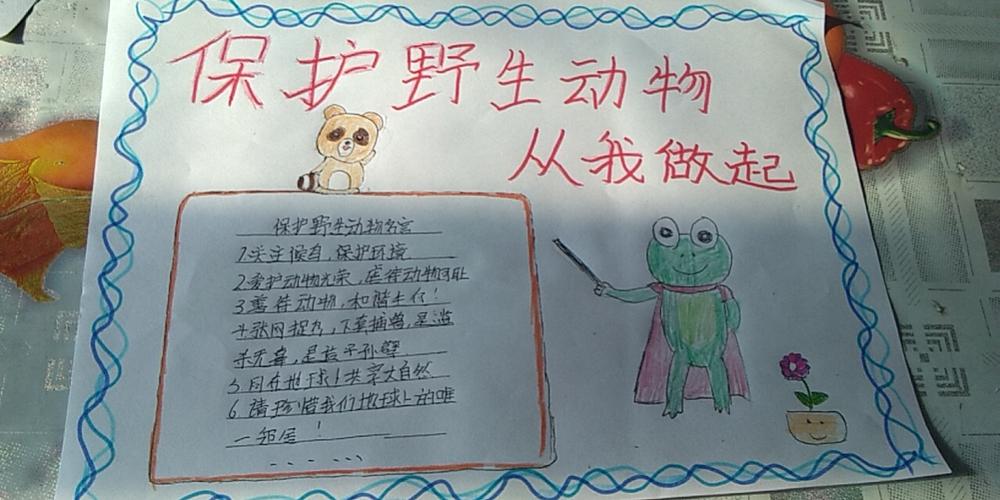 保护野生动物
从我做起
保护野生动物名言
1.关注候鸟,保护环境
2.爱护动物光荣,虐待动物可耻
3.善待动物,和谐共存!
4.张网捉鸟,下套捕兽,是滥
杀无辜,是贻子孙孽.
5.同在地球!共享大自然
6.请珍惜我们地球上的唯
一邻居!